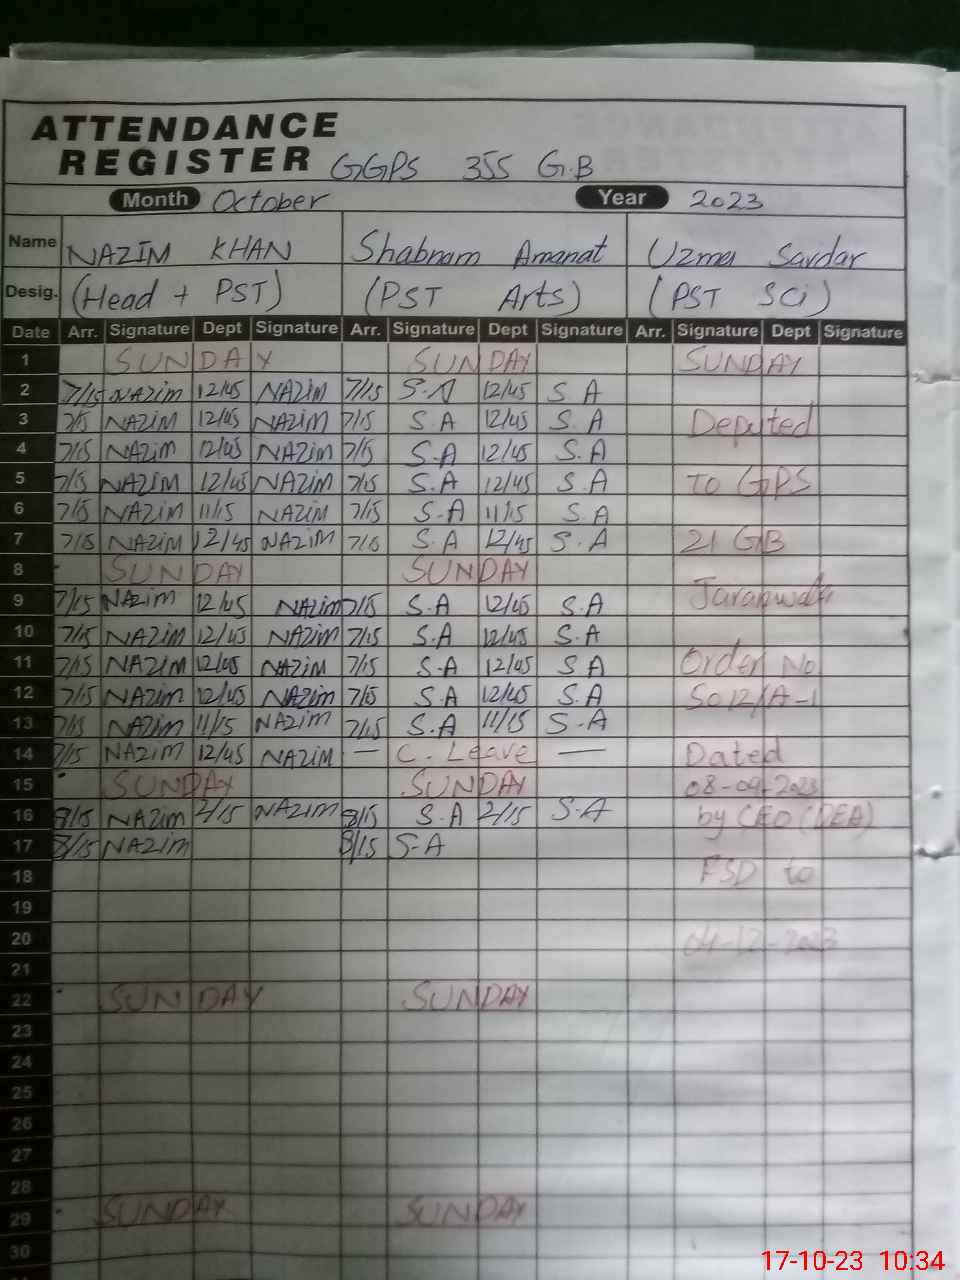 ATTENDANCE
REGISTER GGPS 355 G.B
Month October Year 2023
Name NAZIM KHAN Shabnam Amanat Uzma Sardar
Desig. (Head + PST) (PST Arts) (PST SCi)
Date Arr. Signature Dept Signature Arr. Signature Dept Signature Arr. Signature Dept Signature
1 SUNDAY SUNDAY SUNDAY
2 7/15 NAZIM 12/45 NAZIM 7/15 S.A 12/45 S A
3 7/15 NAZIM 12/45 NAZIM 7/15 S.A 12/45 S.A Deputed
4 7/15 NAZIM 12/45 NAZIM 7/15 S.A 12/45 S.A
5 7/15 NAZIM 12/45 NAZIM 7/15 S.A 12/45 S.A to GPS
6 7/15 NAZIM 11/15 NAZIM 7/15 S-A 11/15 S.A
7 7/15 NAZIM 12/45 NAZIM 7/15 S.A 12/45 S.A 21 GB
8 SUNDAY SUNDAY
9 7/15 NAZIM 12/45 NAZIM 7/15 S.A 12/45 S.A Jaranwala
10 7/15 NAZIM 12/45 NAZIM 7/15 S.A 12/45 S.A
11 7/15 NAZIM 12/45 NAZIM 7/15 S.A 12/45 S A Order No
12 7/15 NAZIM 12/45 NAZIM 7/15 S.A 12/45 S.A 5012/A-1
13 7/15 NAZIM 11/15 NAZIM 7/15 S.A 11/15 S-A
14 7/15 NAZIM 12/45 NAZIM — C. Leave — Dated
15 SUNDAY SUNDAY 08-09-2023
16 8/15 NAZIM 2/15 NAZIM 8/15 S.A 2/15 S-A by CEO (DEA)
17 8/15 NAZIM 8/15 S-A
18 FSD to
19
20 04-12-2023
21
22 SUNDAY SUNDAY
23
24
25
26
27
28
29 SUNDAY SUNDAY
30
17-10-23 10:34